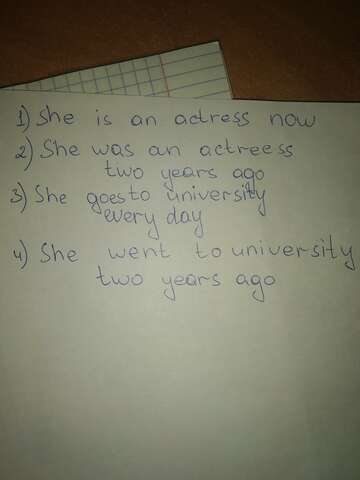 1) She is an actress now
2) She was an actreess
two years ago
3) She goes to university
every day
4) She went to university
two years ago